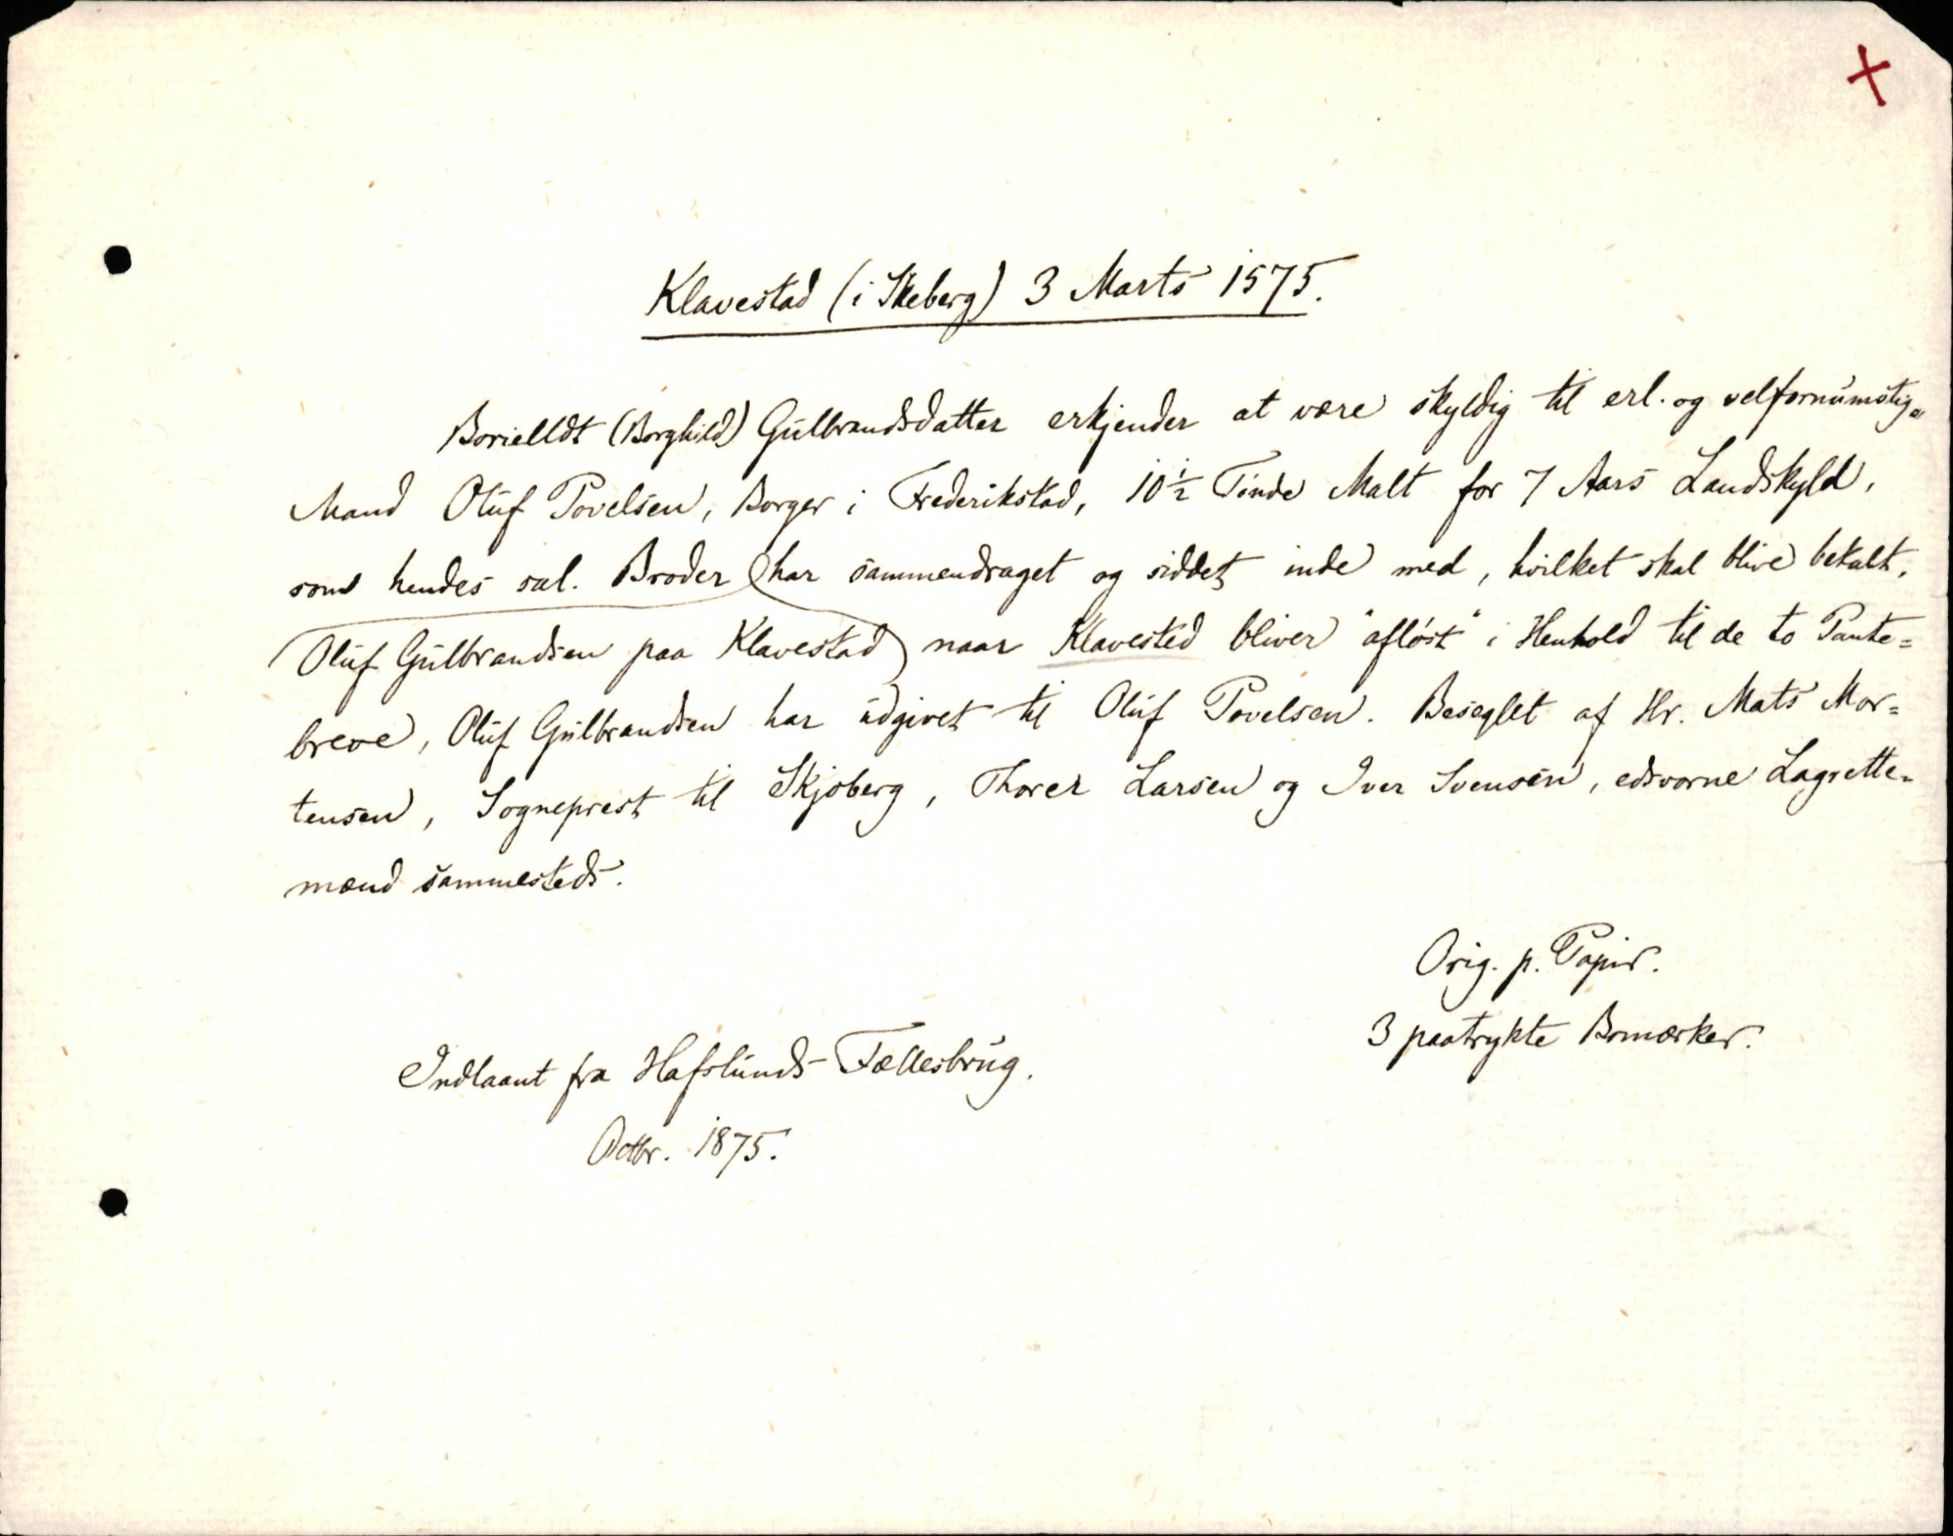 Klavestad (i Skeberg) 3 Marts 1575.
Borielldt (Borghild) Gulbrandsdatter erkjender at være skyldig til erl. og velfornumstige
Mand Oluf Povelsen, Borger i Frederikstad, 10 1/2 Tønde Malt for 7 Aars Landskyld,
som hendes sal. Broder har sammendraget og siddet inde med, hvilket skal blive betalt,
Oluf Gulbrandsen paa Klavestad naar Klavested bliver "afløst" i Henhold til de to Pante=
breve, Oluf Gulbrandsen har udgivet til Oluf Povelsen. Beseglet af Hr. Mats Mor=
tensen, Sogneprest til Skjeberg, Thorer Larsen og Iver Svensen, edsvorne Lagrette=
mænd sammesteds.
Orig. p. Papir.
3 paatrykte Bomærker.
Indlaant fra Hafslunds Fællesbrug.
Octbr. 1875.